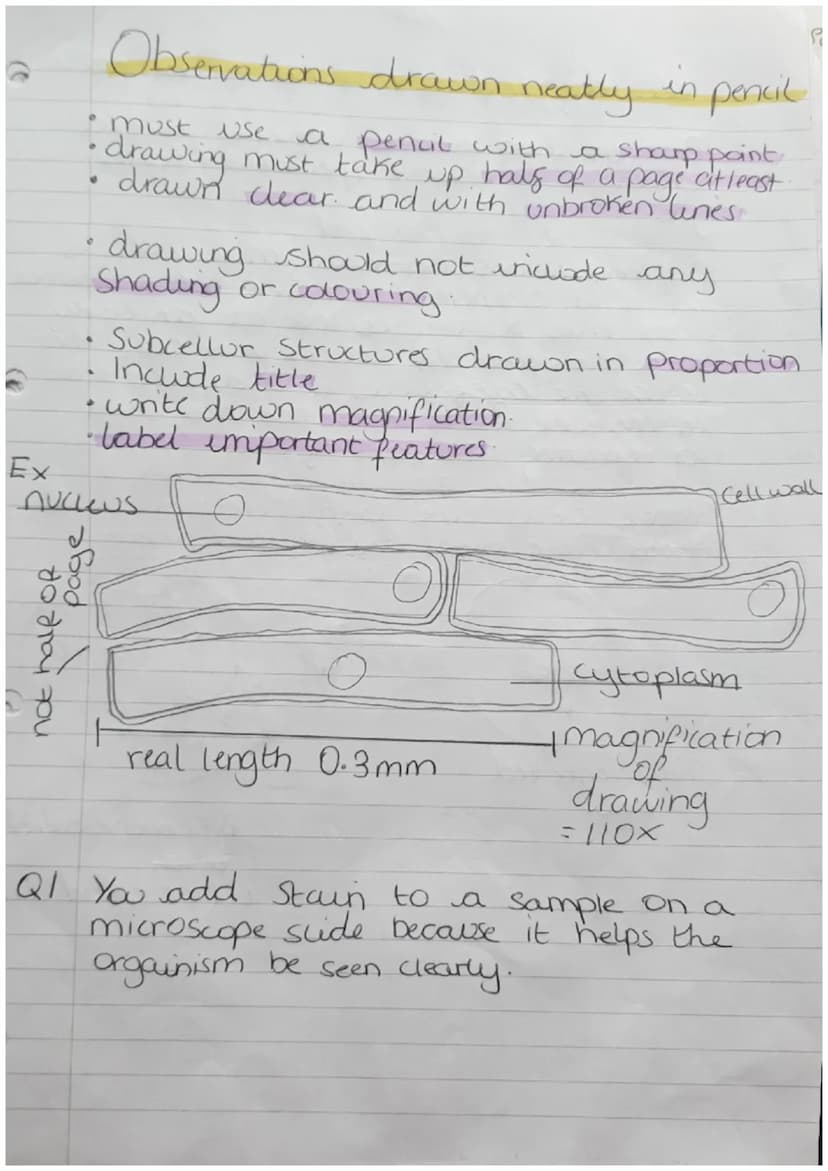 Observations drawn neatly in pencil
• must use a pencil with a sharp point
• drawing must take up half of a page atleast
• drawn clear and with unbroken lines
• drawing should not include any
shading or colouring.
• Subcellur structures drawn in proportion
• Include title
• write down magnification.
• label important features
Ex
nucleus
cell wall
not half of
page
cytoplasm
real length 0.3mm
magnification
of
drawing
= 110x
Q1 You add stain to a sample on a
microscope slide because it helps the
orgainism be seen clearly.